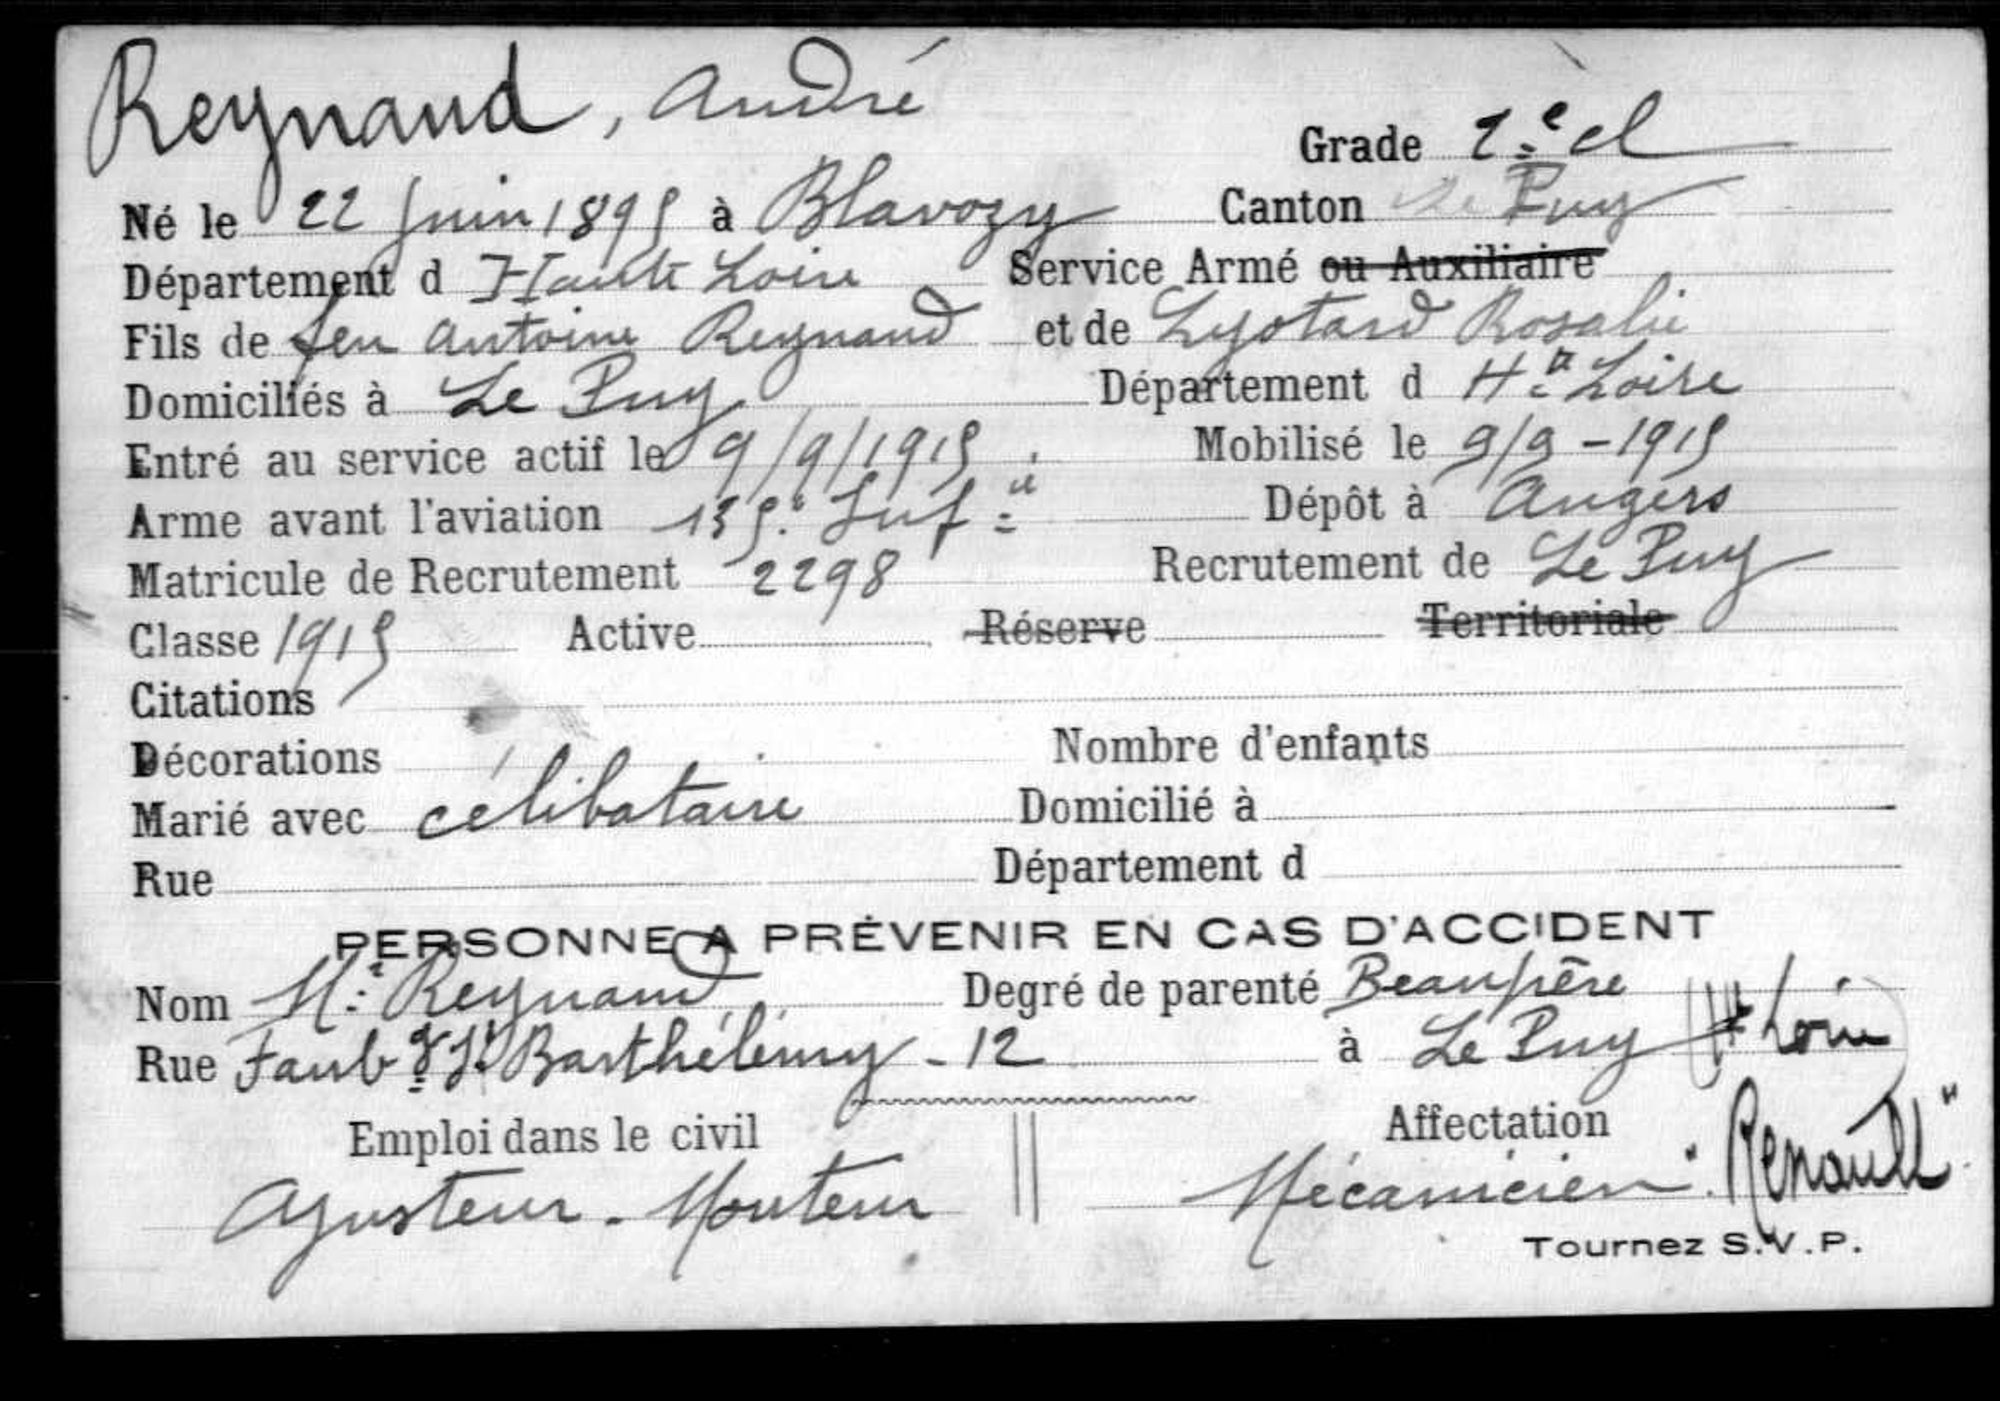 Reynaud, André
Grade 2e cl
Né le 22 Juin 1895 à Blavozy Canton Le Puy
Département d Haute Loire Service Armé ou Auxiliaire
Fils de feu Antoine Reynaud et de Lyotard Rosalie
Domiciliés à Le Puy Département d Hte Loire
Entré au service actif le 9/9/1915 Mobilisé le 9/9-1915
Arme avant l'aviation 135e Inf ie Dépôt à Angers
Matricule de Recrutement 2298 Recrutement de Le Puy
Classe 1915 Active Réserve Territoriale
Citations
Décorations Nombre d'enfants
Marié avec célibataire Domicilié à
Rue Département d
PERSONNE A PRÉVENIR EN CAS D'ACCIDENT
Nom Mr Reynaud Degré de parenté Beaupère
Rue Faubg St Barthélémy - 12 à Le Puy (Hte Loire)
Emploi dans le civil Affectation
Ajusteur - Monteur Mécanicien "Renault"
Tournez S.V.P.